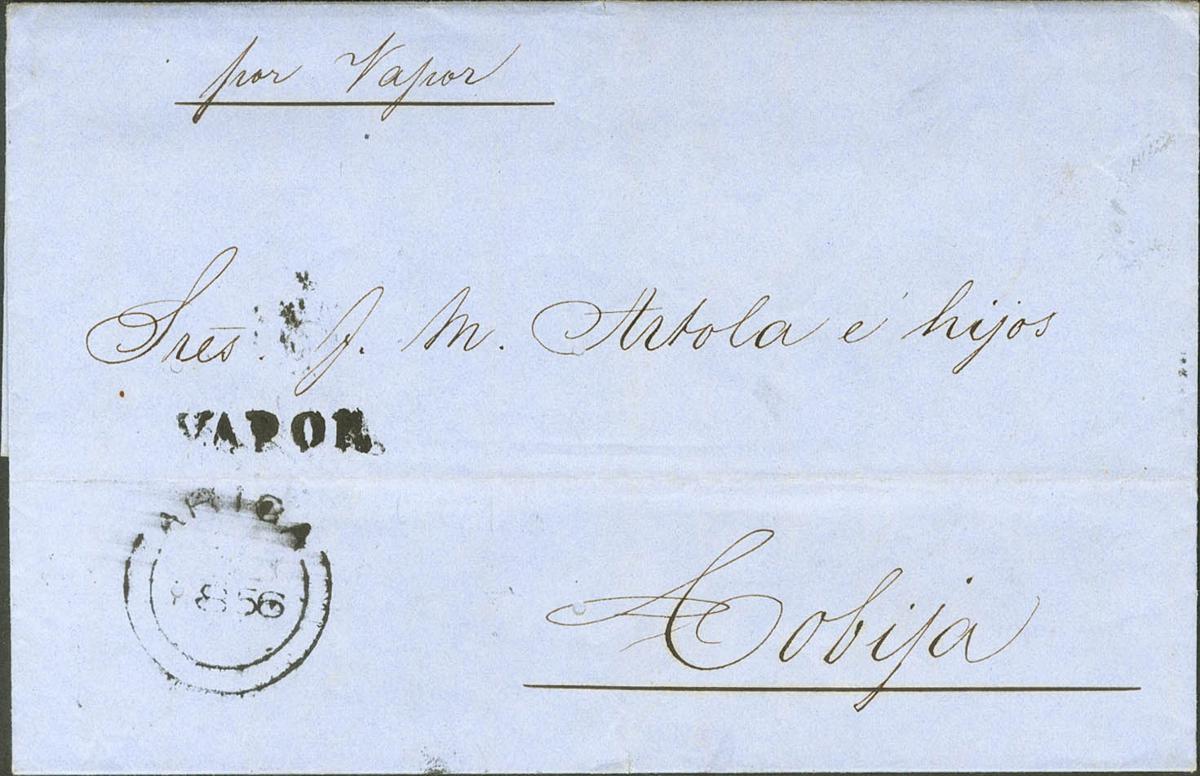 por Vapor
Sres. J. M. Artola é hijos
VAPOR
ARICA
8 56
Cobija